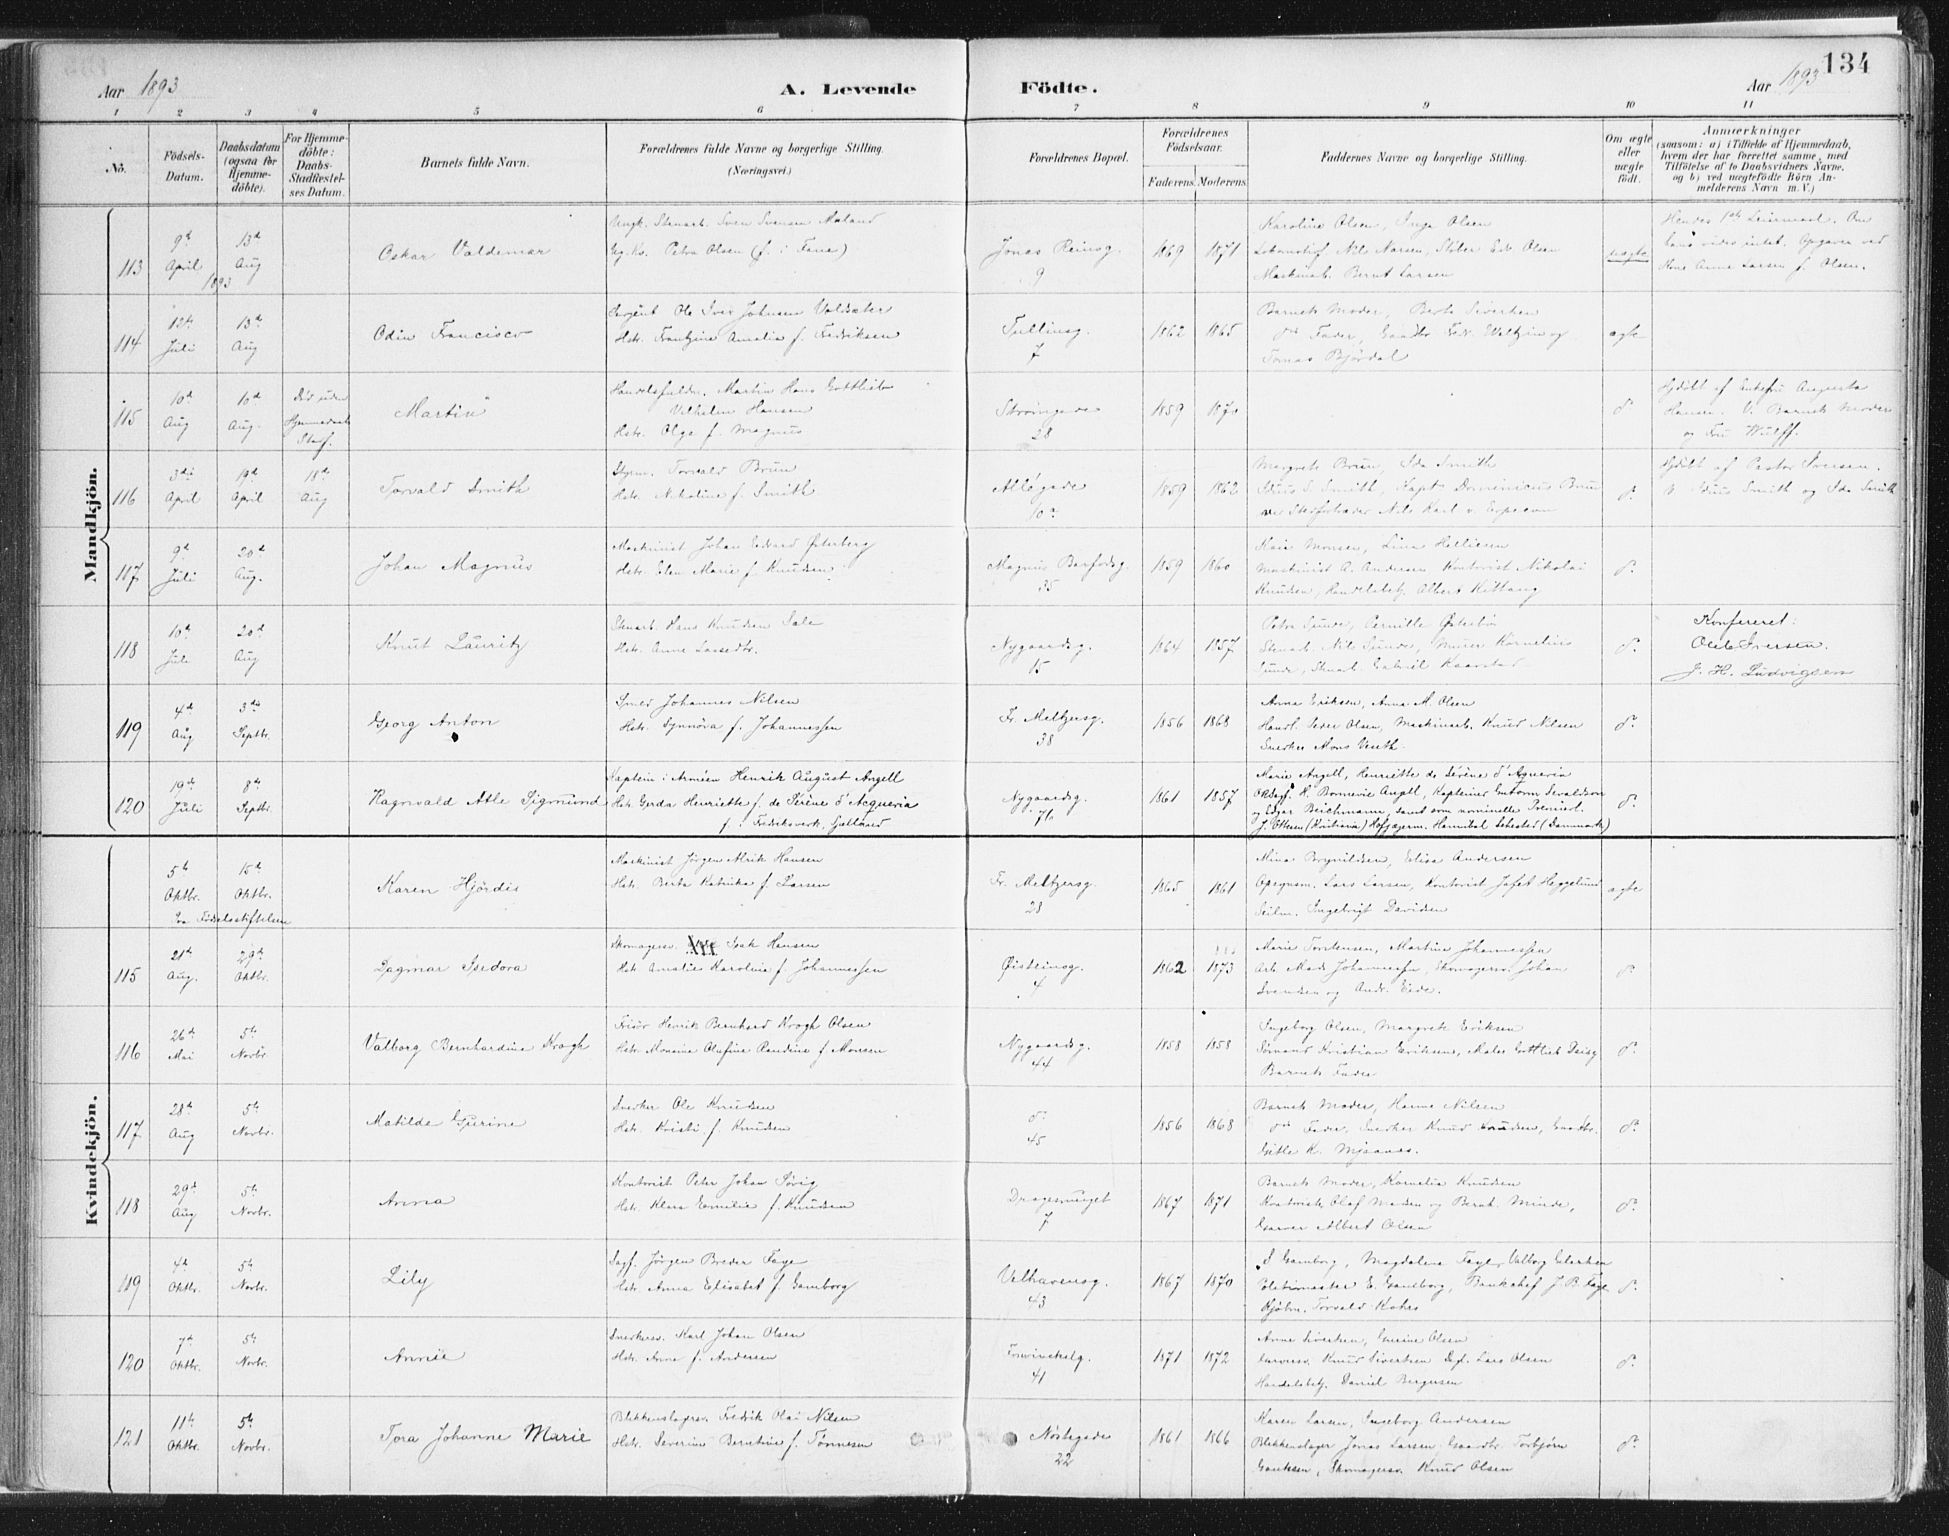 134
Aar 1893
A. Levende
Födte.
Aar 1893
1 2 3 4 5 6 7 8 9 10 11
No.
Födsels-
Datum.
Daabsdatum
(ogsaa for
Hjemme-
döbte).
For Hjemme-
döbte:
Daabs-
Stadfæstel-
ses Datum.
Barnets fulde Navn.
Forældrenes fulde Navne og borgerlige Stilling.
(Næringsvei.)
Forældrenes Bopæl.
Forældrenes
Födselsaar.
Faderens. Moderens.
Faddernes Navne og borgerlige Stilling.
Om ægte
eller
uægte
födt.
Anmærkninger
(saasom: a) i Tilfælde af Hjemmedaab,
hvem der har forrettet samme, med
Tilföielse af to Daabsvidners Navne,
og b) ved uægtefödte Börn An-
melderens Navn m. V.)
Mandkjön.
113
9d
April
1893
13d
Aug
Oskar Valdemar
Ungk. Stenarb. Sven Svensen Maland
Pg. Ks. Petra Olsen (f. i Fana)
Jonas Reinsg.
9
1869 1871
Karoline Olsen, Inga Olsen
Lokomotivf. Nils Larsen, Sliber Edv. Olsen
Maskinarb. Bernt Larsen
uægte
Hendes 1ste Leiermaal. Om
ham vides intet. Opgaven ved
Kone Anna Larsen f. Olsen.
114
12te
Juli
13d
Aug
Odin Francisco
Sergent Ole Iver Johnsen Valdsæter
Hstr. Frantzine Amalia f. Fredriksen
Tullinsg.
7
1862 1865
Barnets Moder, Berta Sivertsen
do Fader, Gaardbr. Fredr. Weltzin og
Tomas Björdal
ægte
115
10d
Aug
10d
Aug.
Död uden
Hjemmedaab
Staf.
Martin
Handelsfuldm. Martin Hans Gottlieb
Vilhelm Hansen
Hstr. Olga f. Magnus
Strangade
28
1859 1870
do
Hjdöbt af Enkefru Augusta
Hansen. V. Barnets Moder
og Fru Wulff.
116
3die
April
19d
April
18d
Aug
Torvald Smith
Styrm. Torvald Brun
Hstr. Nikoline f. Smith
Allégade
10a
1859 1862
Margrete Brun, Ida Smith
Idius S. Smith, Kapt. Dominicus Brun
Nils Karl v. Erpecom
do.
Hjdöbt af Pastor Iversen.
V. Idius Smith og Ida Smith
117
9d
Juli
20d
Aug.
Johan Magnus
Maskinist Johan Edvard Österberg
Hstr. Elen Marie f. Knudsen
Magnus Barfodsg.
35
1859 1860
Kaia Monsen, Lina Hellesen
Maskinist A. Andersen Kontorist Nikolai
Knudsen, Handelsbetj. Albert Kittang
do.
118
10d
Juli
20d
Aug
Knut Lauritz
Stenarb. Hans Knudsen Sale
Hstr. Anne Lassedtr.
Nygaardsg.
15
1864 1857
Petra Sunde, Pernille Österbö
Stenarb. Nils Sunde, Murer Kornelius
Sunde, Stenarb. Gabriel Kaarstad
do.
Konfereret:
Ole Iversen.
J. H. Ludvigsen
119
4d
Aug
3die
Septbr.
Georg Anton
Smed Johannes Nilsen
Hstr. Synnöva f. Johannessen
Fr. Meltzersg.
38
1856 1868
Anna Eriksen, Anna M. Olsen
Handl. Peder Olsen, Maskinarb. Knud Nilsen
Snedker Mons Veseth.
do.
120
19de
Juli
8de
Septbr.
Ragnvald Atle Sigmund
Kaptein i Armeen Henrik August Angell
Hstr. Gerda Henriette f. de Sèréne d'Acqueria
f. i Frederiksværk, Sjælland
Nygaardsg.
76
1861 1857
Marie Angell, Henriette de Sèréne d'Aqueria
H. Bonnevie Angell, Kapteiner Guttorm Sevaldson
og Edgar Reichmann, samt som nominelle Premierl.
J. Ottesen (Kristiania) Hofjægerm. Hannibal Sehested (Danmark)
do.
Kvindekjön.
5te
Oktbr.
15d
Oktbr.
Paa Födselsstiftelsen
Karen Hjördis
Maskinist Jörgen Alrik Hansen
Hstr. Berta Katrina f. Larsen
Fr. Meltzersg.
28
1865 1861
Mina Brynildsen, Elisa Andersen
Opsynsm. Lars Larsen, Kontorist Jafet Heggelund
Seilm. Ingebrigt Davidsen
ægte
115
21d
Aug.
29d
Oktbr.
Dagmar Isedora
Skomagersv. Isak Hansen
Hstr. Amalia Karolina f. Johannessen
Öisteinsg.
4
1862 1873
Marie Torstensen, Martina Johannessen
Arb. Mads Johannessen, Skomagersv. Johan
Svendsen og Andr. Eide.
do.
116
26d
Mai
5te
Novbr.
Valborg Bernhardine Krogh
Frisör Henrik Bernhard Krogh Olsen
Hstr. Monsine Olufine Randine f. Monsen
Nygaardsg.
44
1858 1858
Ingeborg Olsen, Margrete Eriksen
Sömand Kristian Eriksen, Maler Gottlieb Daisy
Barnets Fader
do.
117
28d
Aug
5te
Novbr.
Matilde Gurine
Snedker Ole Knudsen
Hstr. Kristi f. Knudsen
do
45
1856 1868
Barnets Moder, Hanna Nilsen
do Fader, Snedker Knud Knudsen, Gaardbr.
Gitle K. Mjaanes.
do.
118
29d
Aug
5te
Novbr.
Anna
Kontorist Peter Johan Sörig
Hstr. Klara Emilie f. Knudsen
Dragesmuget
7
1867 1871
Barnets Moder, Kornelia Knudsen
Kontorister Olaf Madsen og Bernh. Minde,
Garver Albert Olsen
do.
119
4d
Oktbr.
5te
Novbr.
Lily
Sagf. Jörgen Breder Faye
Hstr. Anna Elisabet f. Gamborg
Velhavensg.
43
1867 1870
S Gamborg, Magdalena Faye, Valborg Eilertsen
Politimester E. Gamborg, Bankchef J. B. Faye
Kjöbm. Torvald Kahrs
do.
120
7d
Oktbr.
5te
Novbr.
Annie
Snedkersv. Karl Johan Olsen
Hstr. Anna f. Andersen
41
1871 1872
Anna Sivertsen, Gurine Olsen
Garversv. Knud Sivertsen Dagl. Lars Olsen
Handelsbetj. Daniel Bergesen
do.
121
11te
Oktbr.
5te
Novbr.
Tora Johanne Marie
Blikkenslagersv. Fredrik Olai Nilsen
Hstr. Severine Berntine f. Tönnesen
Nöstegade
22
1861 1866
Karen Larsen, Ingeborg Andersen
Blikkenslager Jonas Larsen Gaardbr. Torbjörn
Gautesen, Skomagersv. Knud Olsen
do.